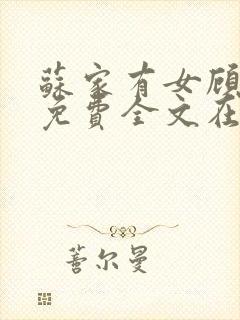 蘇家有女顧
免費全文在
善尔曼